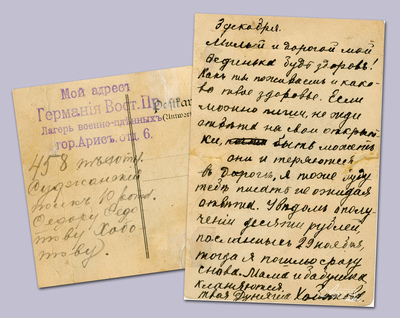 Мой адрест
Германія Вост. Пр.
Postkar
Лагерь военно-плѣнныхъ
гор. Арисъ. отд. 6.
458 пѣхот.
Суджанскій
полкъ 10 рота
Федору Федо
тову Хабо
тову.
3 декабря.
Милый и дорогой мой
Феденька будь здоровъ!
Какъ ты поживаешь и како-
во твое здоровье. Если
можно пиши, не жди
отвѣта на мои открыт
ки, быть можетъ
они и теряются
въ дороги, я тоже буду
тебѣ писать не ожидая
отвѣта. Увѣдомь о полу
ченіи десяти рублей,
посланныхъ 29 ноября,
тогда я пошлю сразу
снова. Мама и бабушка
кланяются.
твая Дунягиа Хаботова